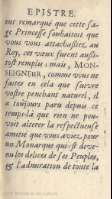 EPISTRE.
eut remarqué que cette sa-
ge Princesse souhaitoit que
vous vous attachassiez, au
Roy, ces vœux furent aussi-
tost remplis: mais, MON-
SEIGNEUR, comme vous ne
faites en cela que suivre
vostre penchant naturel, il
a toûjours paru depuis ce
temps-là que rien ne pou-
voit alterer la respectueuse
amitié que vous aviez, pour
un Monarque qui est deve-
nu les delices de ses Peuples,
& l'admiration de toute la